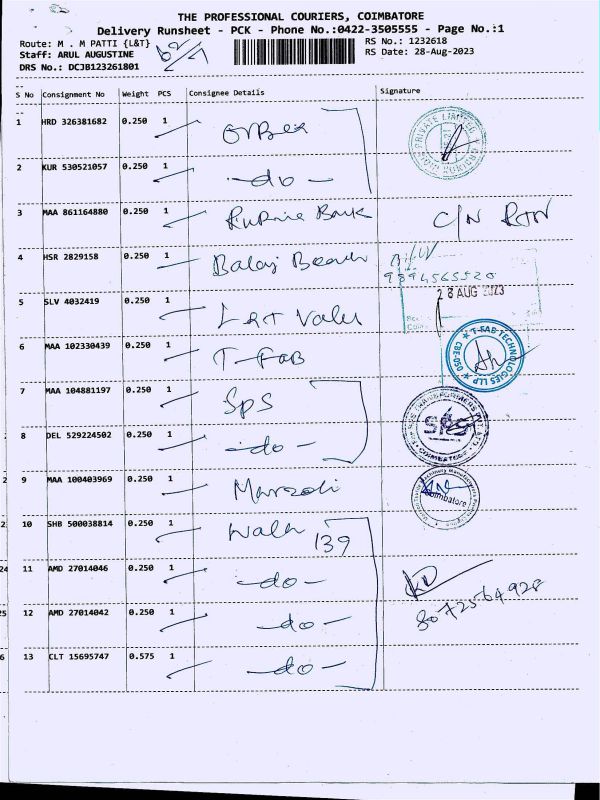 THE PROFESSIONAL COURIERS, COIMBATORE
Delivery Runsheet - PCK - Phone No.:0422-3505555 - Page No.:1
Route: M . M PATTI {L&T} RS No.: 1232618
Staff: ARUL AUGUSTINE RS Date: 28-Aug-2023
DRS No.: DCJB123261801
S No Consignment No Weight PCS Consignee Details Signature
1 HRD 326381682 0.250 1
2 KUR 530521057 0.250 1 -do-
3 MAA 861164880 0.250 1 Bank C/N RTN
4 HSR 2829158 0.250 1 Balaj
9894565520
28 AUG 2023
5 SLV 4032419 0.250 1 L&T Valu
6 MAA 102330439 0.250 1 T-FAB
T-FAB TECHNOLOGIES LLP CBE-050
7 MAA 104881197 0.250 1 SPS
8 DEL 529224502 0.250 1 -do-
COIMBATORE
9 MAA 100403969 0.250 1 Marzoli
Coimbatore
10 SHB 500038814 0.250 1 139
11 AMD 27014046 0.250 1 -do-
12 AMD 27014042 0.250 1 -do-
8072564928
13 CLT 15695747 0.575 1 -do-